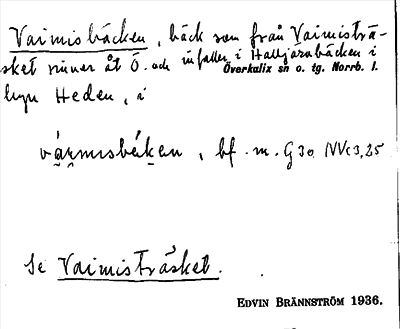 Vaimisbäcken, bäck som från Vaimisträ-
sket rinner åt Ö. och infaller i Halljärvbäcken i
Överkalix sn o. tg. Norrb. l.
byn Heden, i
bf. m. G30 NVc3,25
Se Vaimisträsket.
EDVIN BRÄNNSTRÖM 1936.